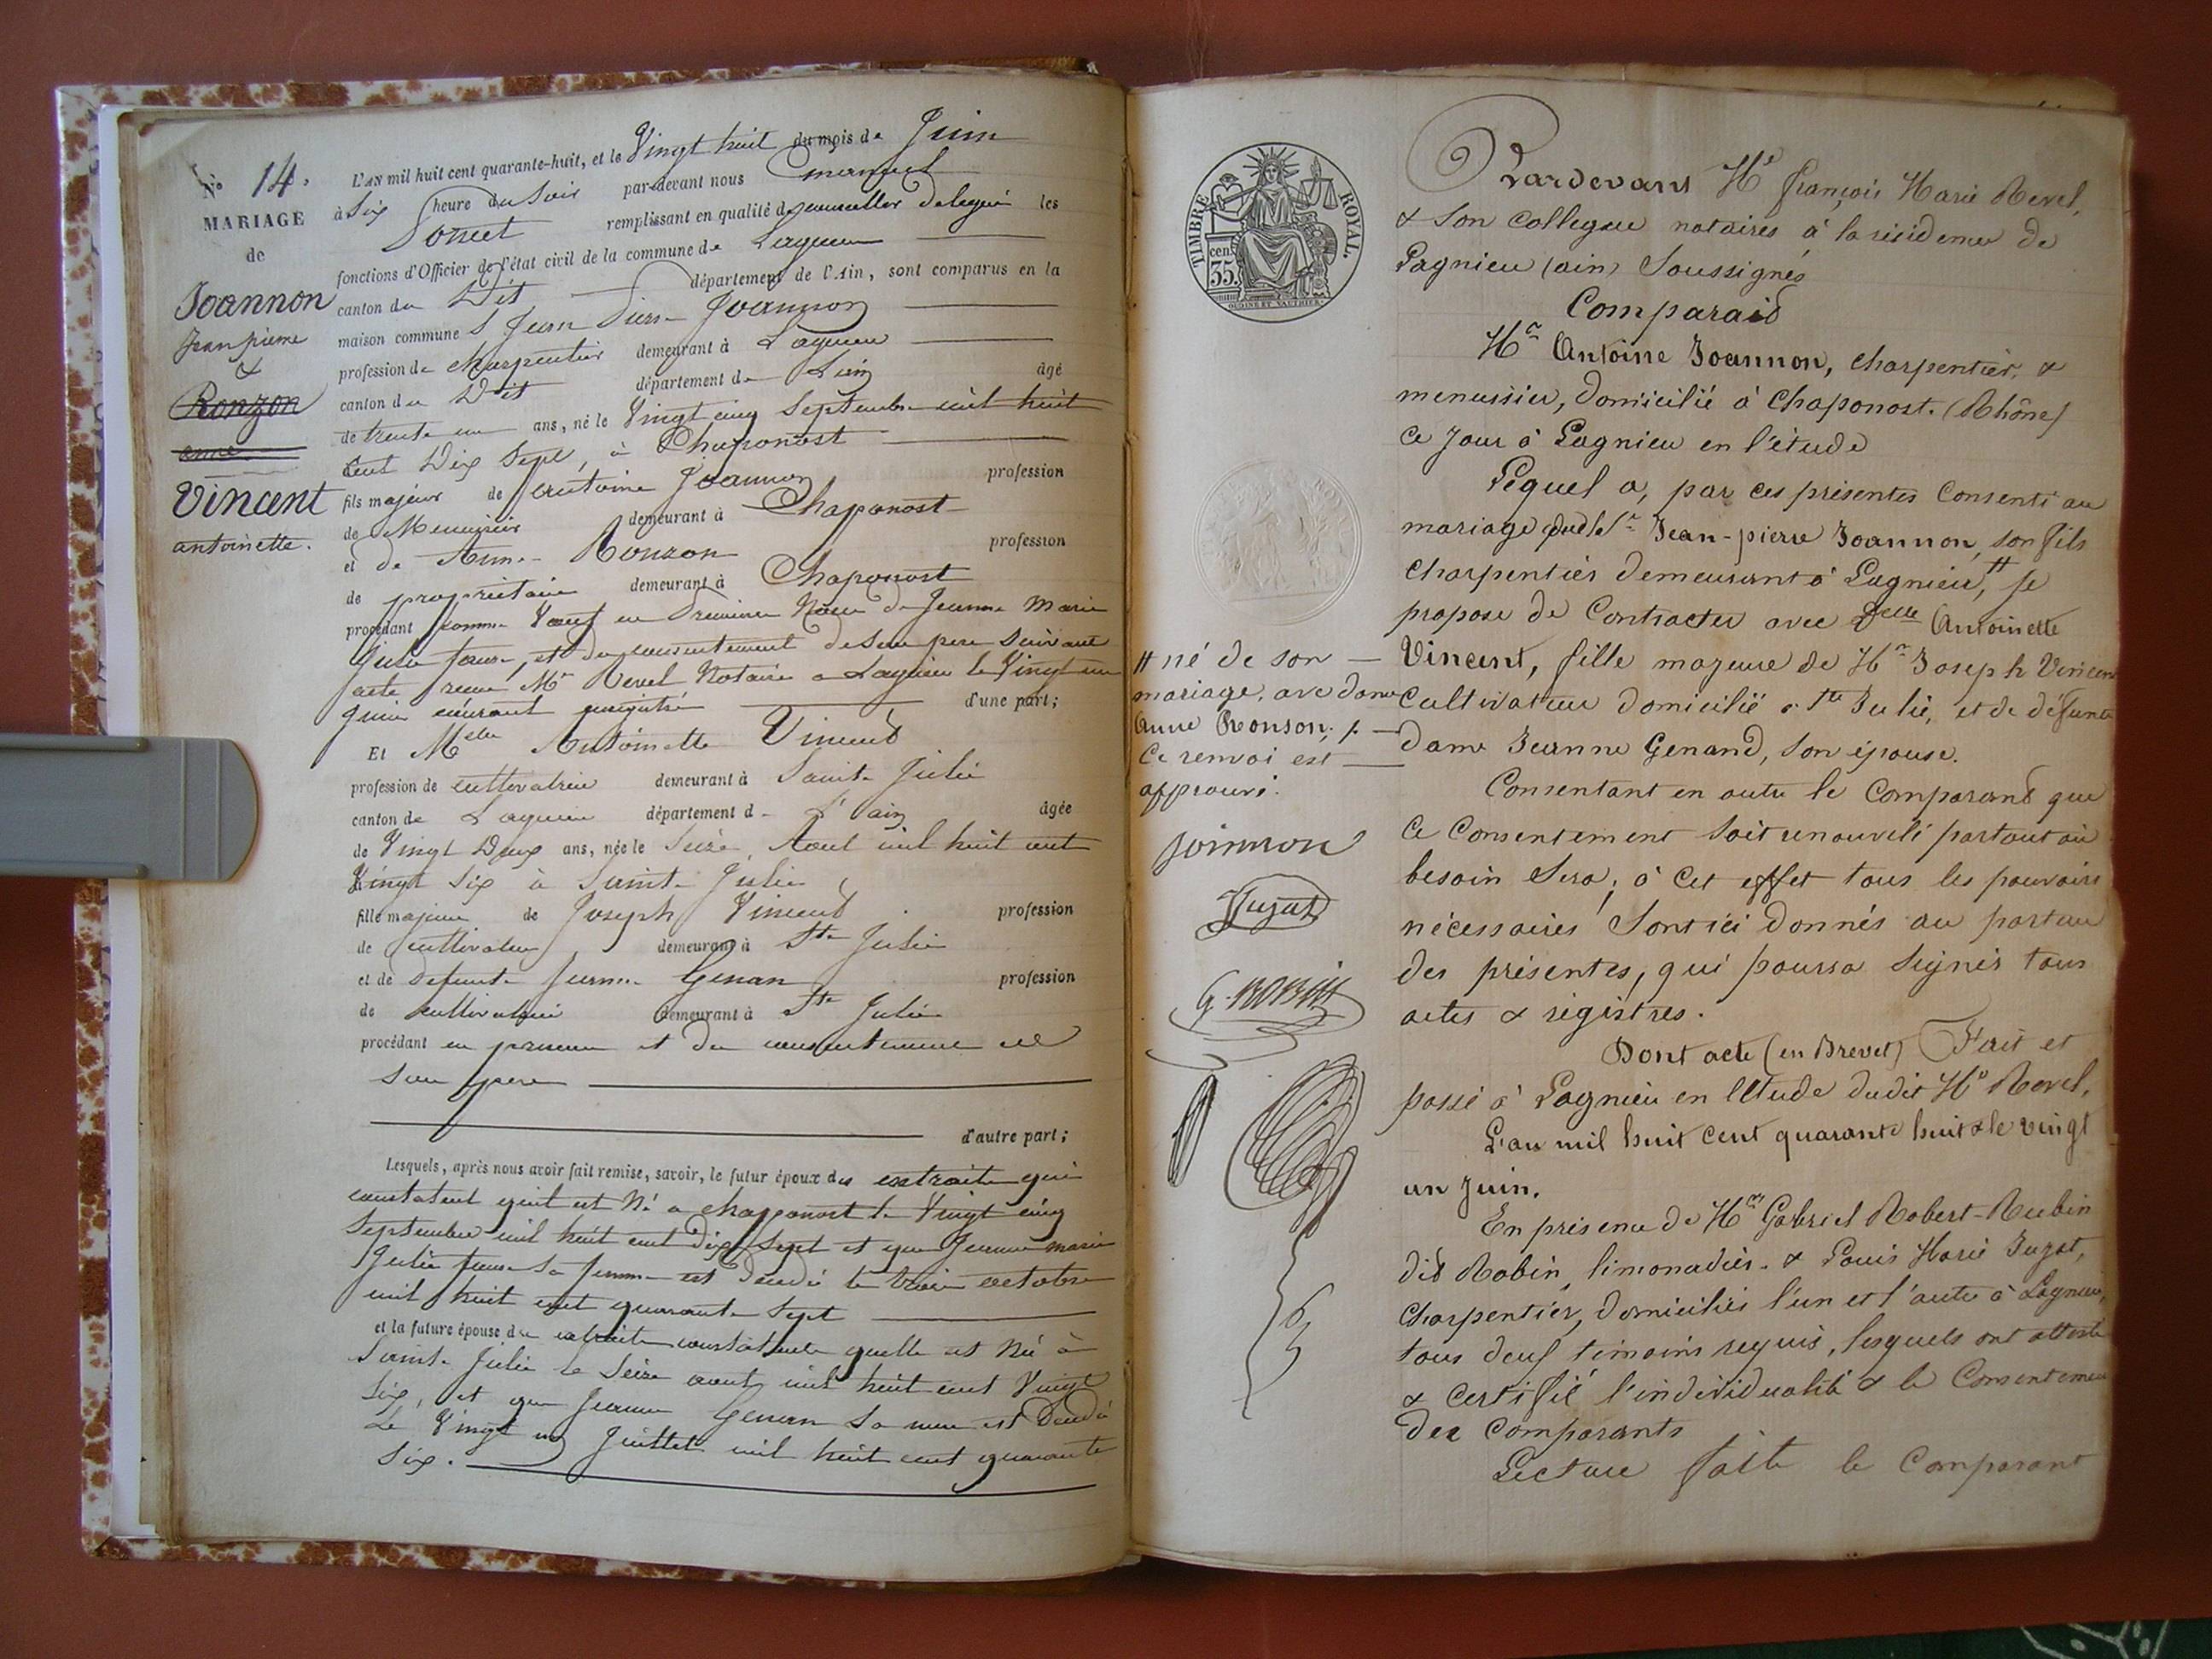 N° 14.
MARIAGE
de
Joannon
Jean pierre
&
Ronzon
anne
Vincent
antoinette.
L'AN mil huit cent quarante-huit, et le Vingt huit du mois de Juin
à Six heure du Soir par-devant nous
remplissant en qualité de conseiller délégué les
fonctions d'Officier de l'état civil de la commune de Lagnieu
canton du Dit département de l'Ain, sont comparus en la
maison commune S Jean Pierre Joannon
profession de charpentier demeurant à Lagnieu
canton du Dit département de L'ain âgé
de trente un ans, né le Vingt cinq Septembre mil huit
Cent Dix Sept, à Chaponost
fils majeur de Antoine Joannon profession
de Menuisier demeurant à Chaponost
et de Anne Ronzon profession
de propriétaire demeurant à Chaponost
procédant comme Veuf en Premiere Noce de Jeanne Marie
Julie faure, et du consentement de son pere Suivant
acte recu Mr Revel Notaire a Lagnieu le Vingt un
Juin courant enregistré d'une part;
Et Melle Antoinette Vincent
profession de cultivatrice demeurant à Sainte Julie
canton de Lagnieu département de L'ain âgée
de Vingt Deux ans, née le Seize Aout mil huit cent
Vingt Six à Sainte Julie
fille majeure de Joseph Vincent profession
de cultivateur demeurant à Ste Julie
et de Defunte Jeanne Genan profession
de cultivatrice demeurant à Ste Julie
procédant en personne et du consentement de
Son pere
d'autre part;
Lesquels, après nous avoir fait remise, savoir, le futur époux des extraits qui
constatent quil est Né a chapponost le Vingt cinq
Septembre mil huit cent Dix Sept et que Jeanne marie
Julie faure Sa femme est décédé le treize octobre
mil huit cent quarante Sept
et la future épouse des extraits constatants quelle est Née à
Sainte Julie le Seize aout mil huit cent Vingt
Six, et que Jeanne Genan Sa mere est Décédé
Le Vingt un Juillet mil huit cent quarante
Six.
TIMBRE ROYAL.
35 cen.
Pardevant Me françois Marie Revel,
& Son collegue notaires à la résidence de
Lagnieu (ain) Soussignés
Comparaît
Mr Antoine Joannon, charpentier, &
menuisier, domicilié à Chaponost. (Rhône)
ce jour à Lagnieu en l'étude
Lequel a, par ces présentes Consenti au
mariage que le Sr Jean-pierre Joannon, son fils
charpentier demeurant à Lagnieu, # se
propose de Contracter avec Delle Antoinette
Vincent, fille majeure de Mr Joseph Vincent
Cultivateur domicilié à Ste Julie, et de défunte
dame Jeanne Genand, son épouse.
Consentant en outre le Comparant que
ce Consentement soit renouvelé partout où
besoin Sera; à Cet effet tous les pouvoirs
nécessaires Sont ici donnés au porteur
des présentes, qui pourra Signer tous
actes & régistres.
Dont acte (en Brevet) Fait et
passé à Lagnieu en l'Etude dudit Me Revel,
L'an mil huit cent quarante huit & le vingt
un Juin.
En présence de Mrs Gabriel Robert-Rubin
dit Robin, limonadier. & Louis Marie Juzat,
Charpentier, domiciliés l'un et l'autre à Lagnieu,
tous deux témoins requis, lesquels ont attesté
& certifié l'individualité & le Consentement
des Comparants
Lecture faite le Comparant
# né de son
mariage, avec dame
Anne Ronson. /.
Ce renvoi est
approuvé.
Joannon
Juzat
G. ROBIN